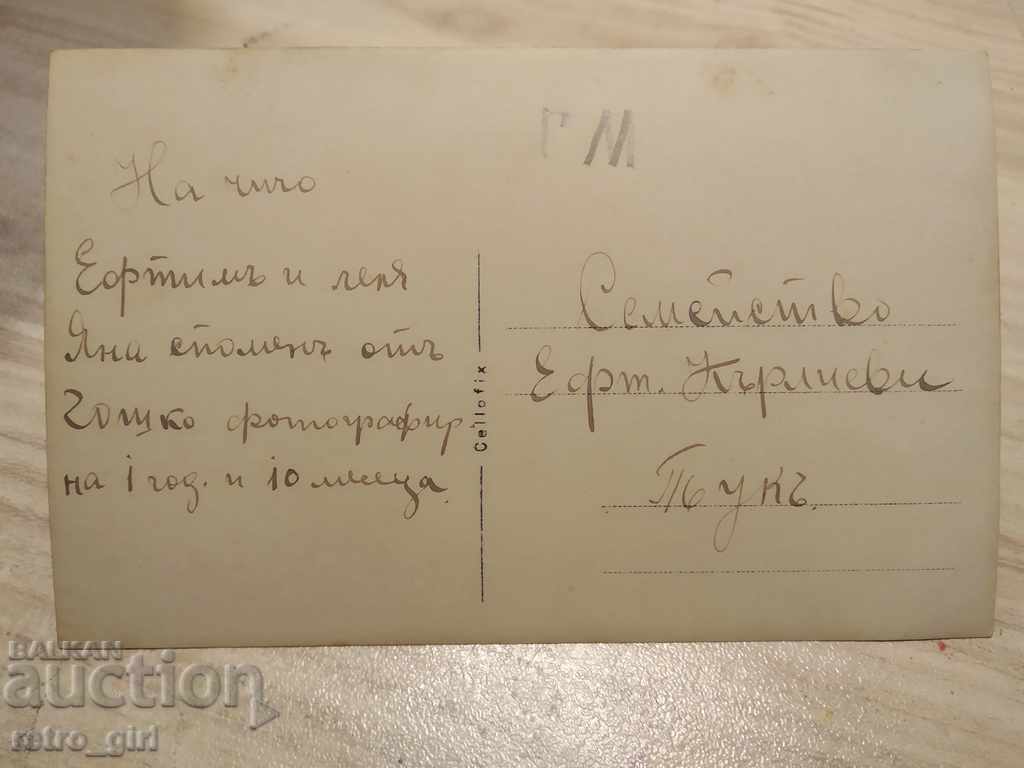 На чичо
Ефтимъ и леля
Яна споменъ отъ
Гошко фотографир
на 1 год. и 10 месеца.
Cellofix
ГМ
Семейство
Ефт. Кърлиеви
Тукъ.
BALKAN
auction
retro_girl